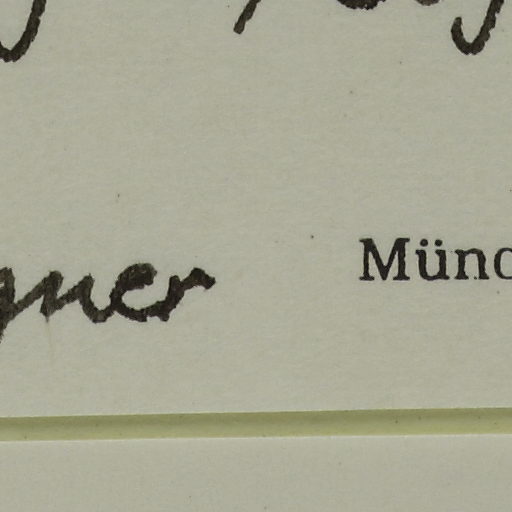 gner Münc